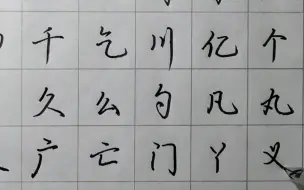 千乞川亿个
久么勺凡丸
广亡门丫义